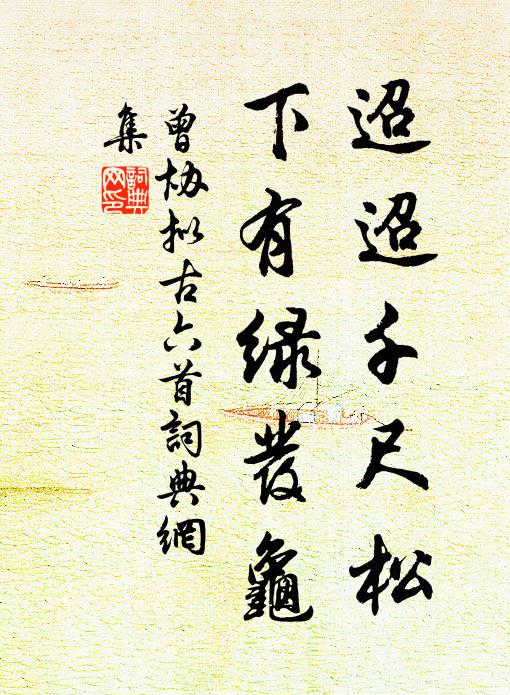 迢迢千尺松
下有緑發龜
曾协拟古六首詞典網
集
詞典
网印